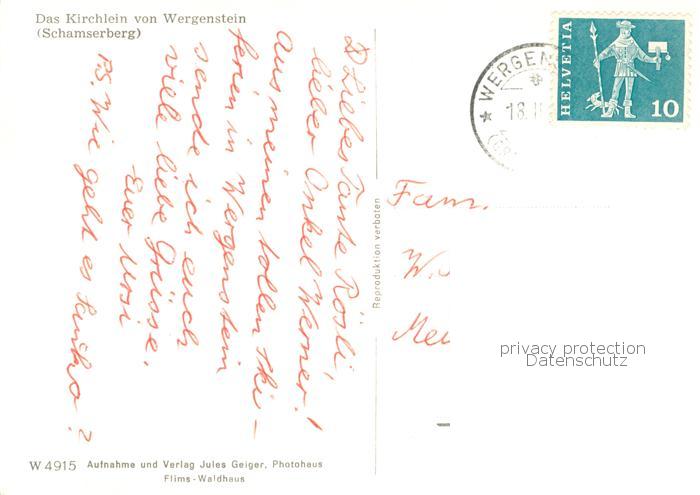 Das Kirchlein von Wergenstein
(Schamserberg)
Liebes Tante Rösli,
lieber Onkel Werner!
Aus meinen tollen Ski-
ferien in Wergenstein
sende ich euch
viele liebe Grüsse.
Euer Ursi
P.S. Wie geht es Senkho?
W 4915 Aufnahme und Verlag Jules Geiger, Photohaus
Flims-Waldhaus
Reproduktion verboten
WERGEN
18.
HELVETIA
10
Fam.
W.
Mei
privacy protection
Datenschutz